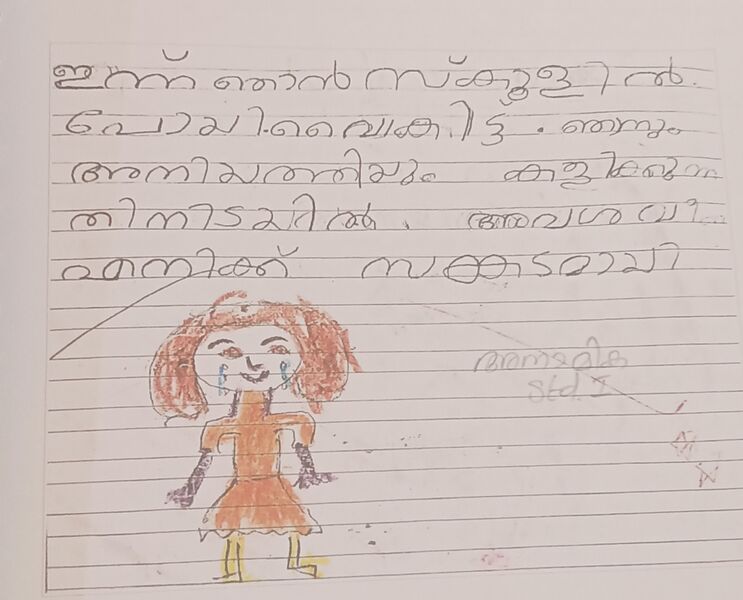 ഇന്ന് ഞാൻ സ്കൂളിൽ
പോയി.വൈകിട്ട് . ഞനും
അനിയത്തിയും കളിക്കുന്ന
തിനിടയിൽ .
എനിക്ക് സങ്കടമായി
അനാമിക
Std. I